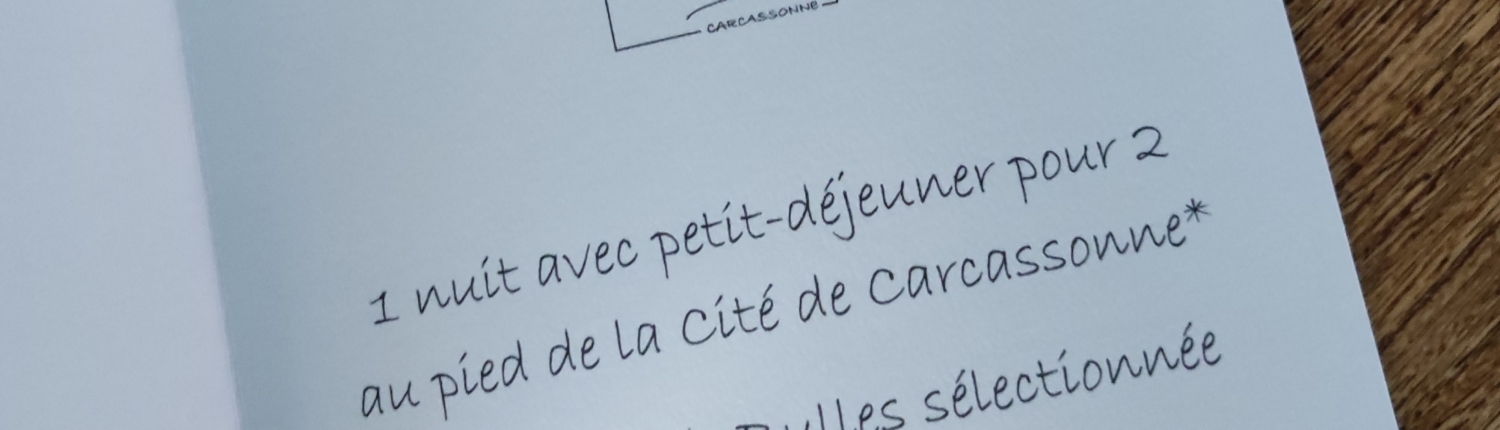 CARCASSONNE
1 nuit avec petit-déjeuner pour 2
au pied de la Cité de Carcassonne*
Bulles sélectionnée